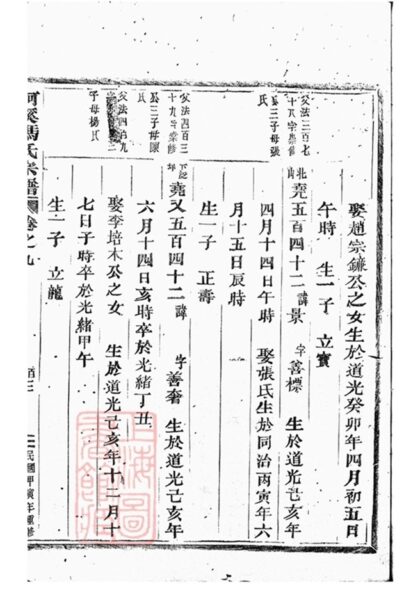 娶趙宗鐮公之女生於道光癸卯年四月初五日
午時 生一子 立寶
父法三百七
子母張
氏
堯五百四十二 諱景 字善標 生於道光己亥年
四月十四日午時 娶張氏生於同治丙寅年六
月十五日辰時
生一子 正壽
父法四百三
三子母陳
氏
堯又五百四十二 諱 字善奢 生於道光己亥年
六月十四日亥時卒於光緒丁丑
父法四百九
子母楊氏
娶李培木公之女 生於道光己亥年十二月十
七日子時卒於光緒甲午
生一子 立龍
馮氏宗譜 卷之九
百三
民國甲寅年重修
上海圖書館藏